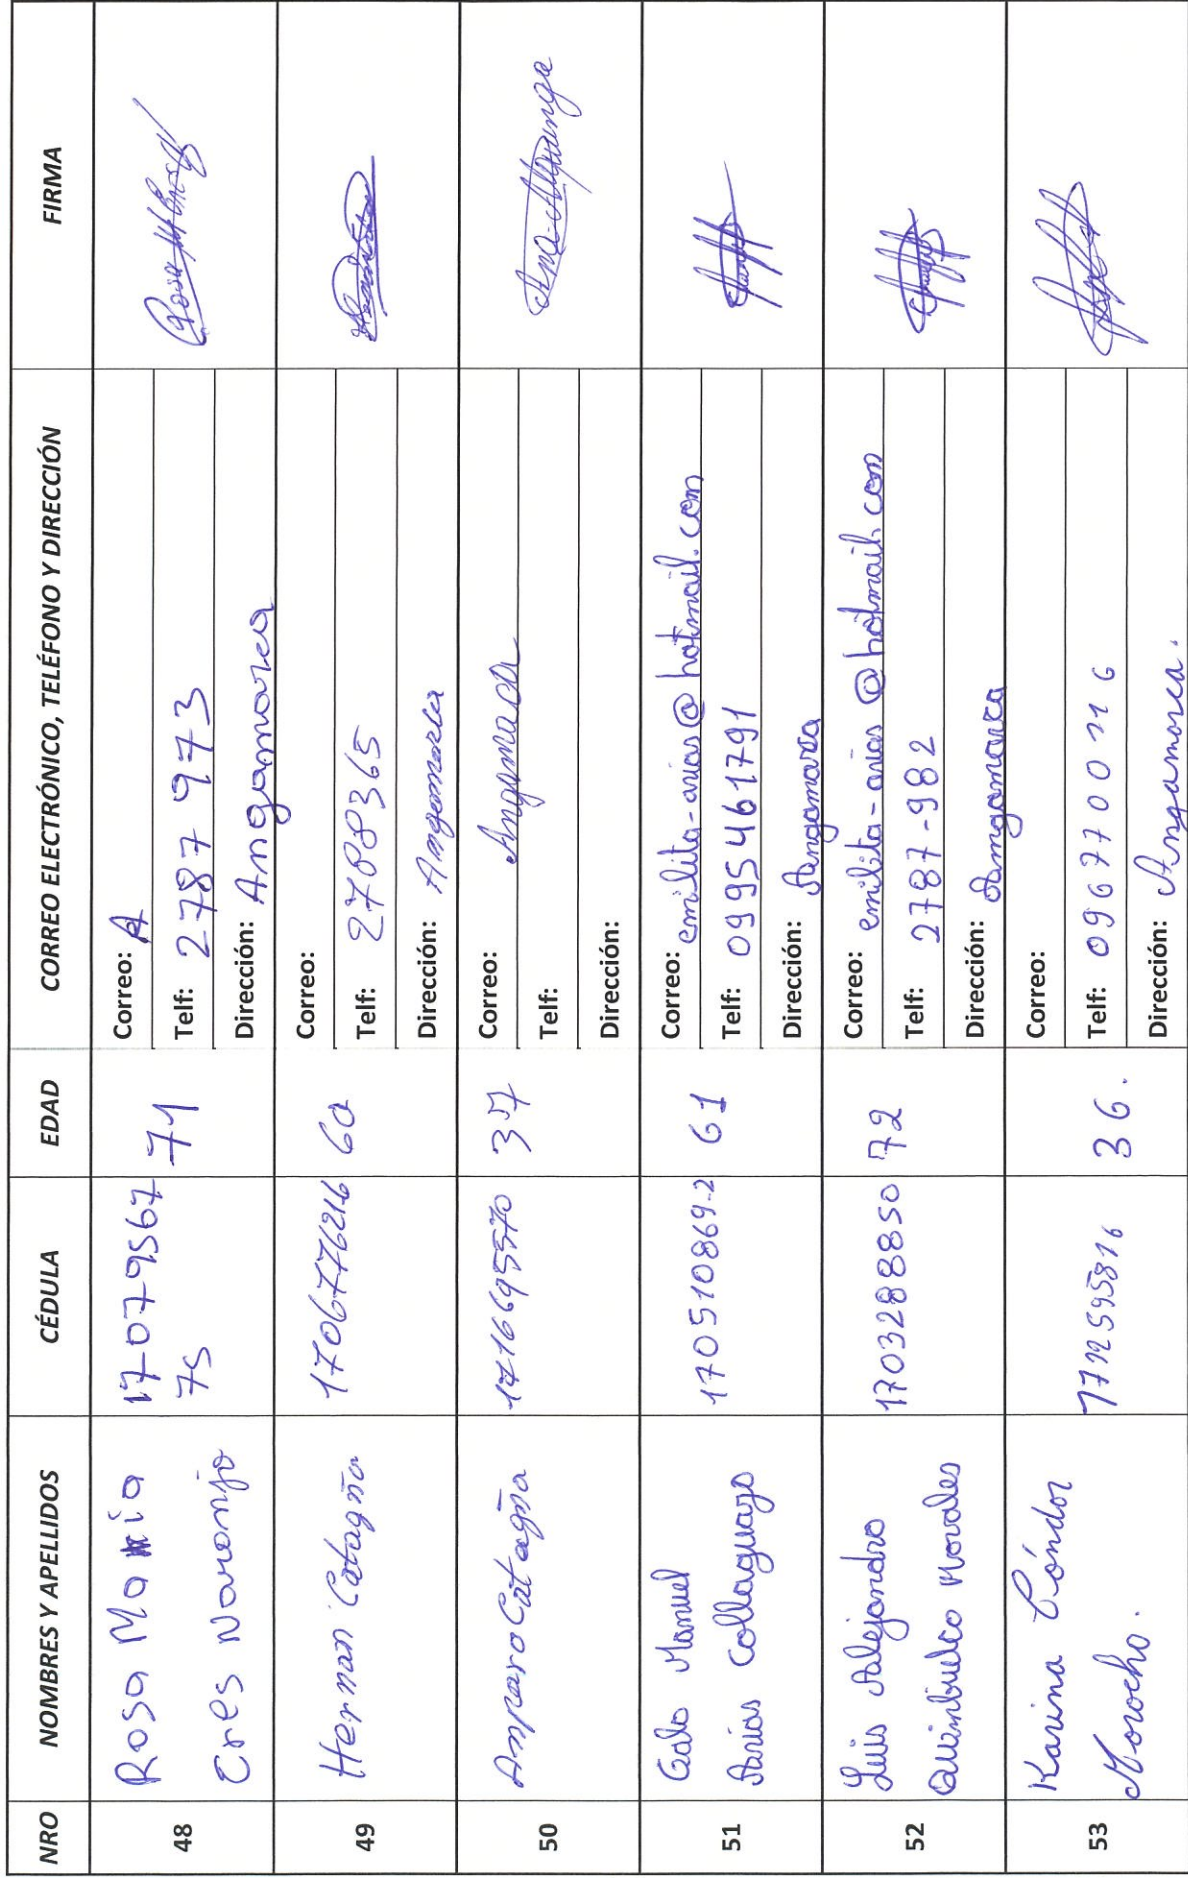 NRO NOMBRES Y APELLIDOS CÉDULA EDAD CORREO ELECTRÓNICO, TELÉFONO Y DIRECCIÓN FIRMA
48
Rosa María
Cres Naranjo
170799567
75
71
Correo: A
Telf: 2787 973
Dirección: Angamarca
49
Hernan Catagña
1706776216
60
Correo:
Telf: 2788365
Dirección: Angamarca
50
Amparo Catagña
1716695570
37
Correo: Angamarca
Telf:
Dirección:
Ana
51
Galo Manuel
Arias Collaguazo
170510869-2
61
Correo: emilita-arias@hotmail.com
Telf: 0995461791
Dirección: Angamarca
52
Luis Alejandro
Quimbiulco Morales
1703288850
72
Correo: emilita-arias@hotmail.com
Telf: 2787-982
Dirección: Angamarca
53
Karina Cóndor
Morocho.
36.
Correo:
Telf: 0967700116
Dirección: Angamarca.